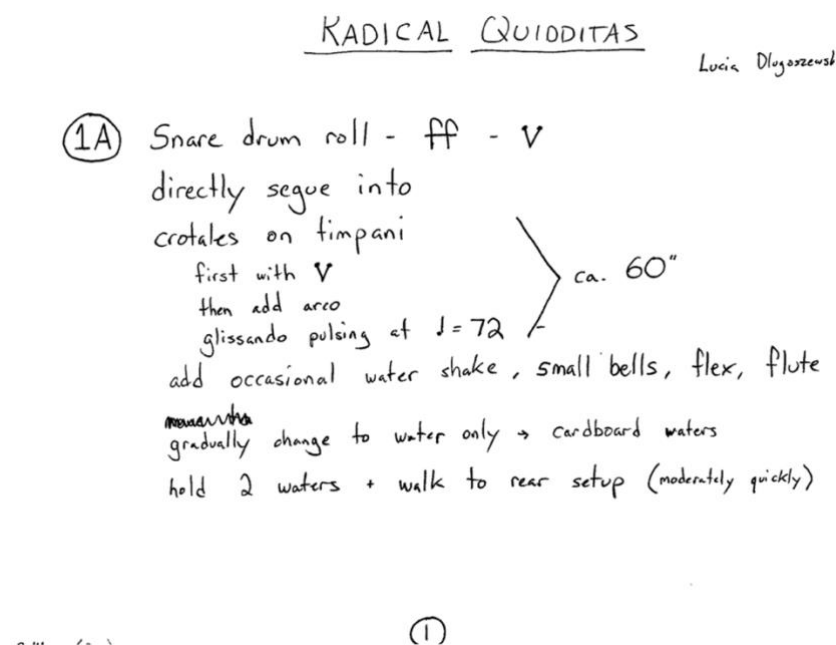 RADICAL QUIDDITAS
Lucia Dlugoszewsk
1A Snare drum roll - ff - V
directly segue into
crotales on timpani
first with V
then add arco
ca. 60"
glissando pulsing at ♩= 72
add occasional water shake, small bells, flex, flute
gradually change to water only → cardboard waters
hold 2 waters + walk to rear setup (moderately quickly)
1